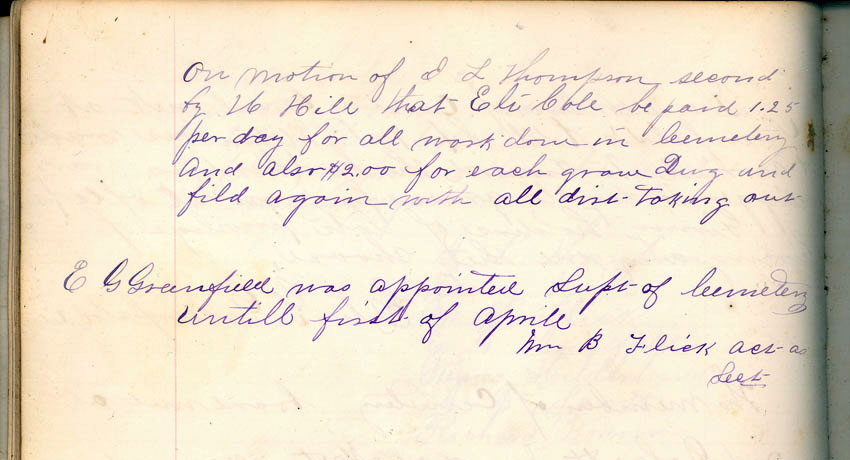 On motion of E L Thompson second
by H Hill that Eli Cole be paid 1.25
per day for all work done in Cemetery
and also $2.00 for each grave Dug and
fild again with all dirt taking out
E G Greenfield was appointed Supt of Cemetery
untill first of Aprile
Wm B Flick act as
Sect